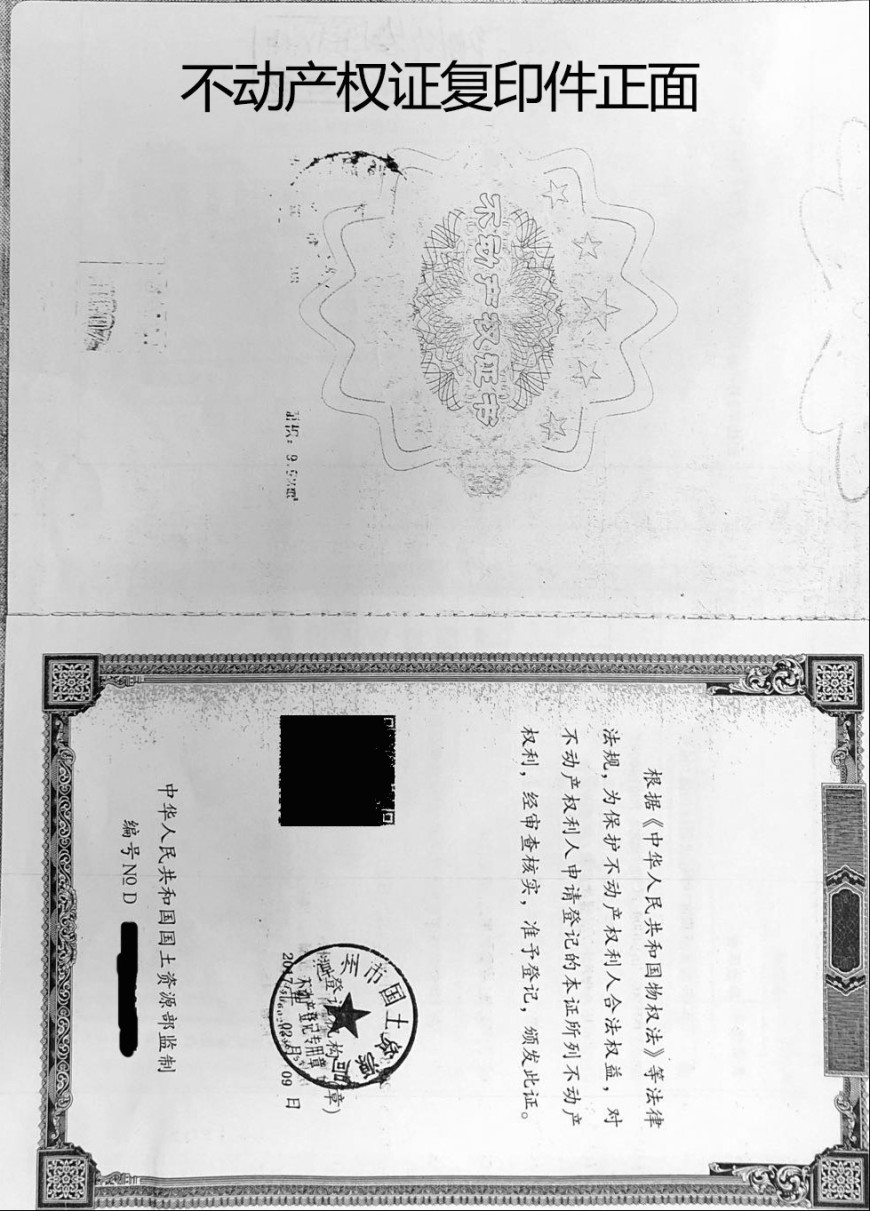 不动产权证复印件正面
不动产权证书
根据《中华人民共和国物权法》等法律
法规，为保护不动产权利人合法权益，对
不动产权利人申请登记的本证所列不动产
权利，经审查核实，准予登记，颁发此证。
州市国土资源局
登记机构（章）
不动产登记专用章
2017年02月09日
中华人民共和国国土资源部监制
编号 № D